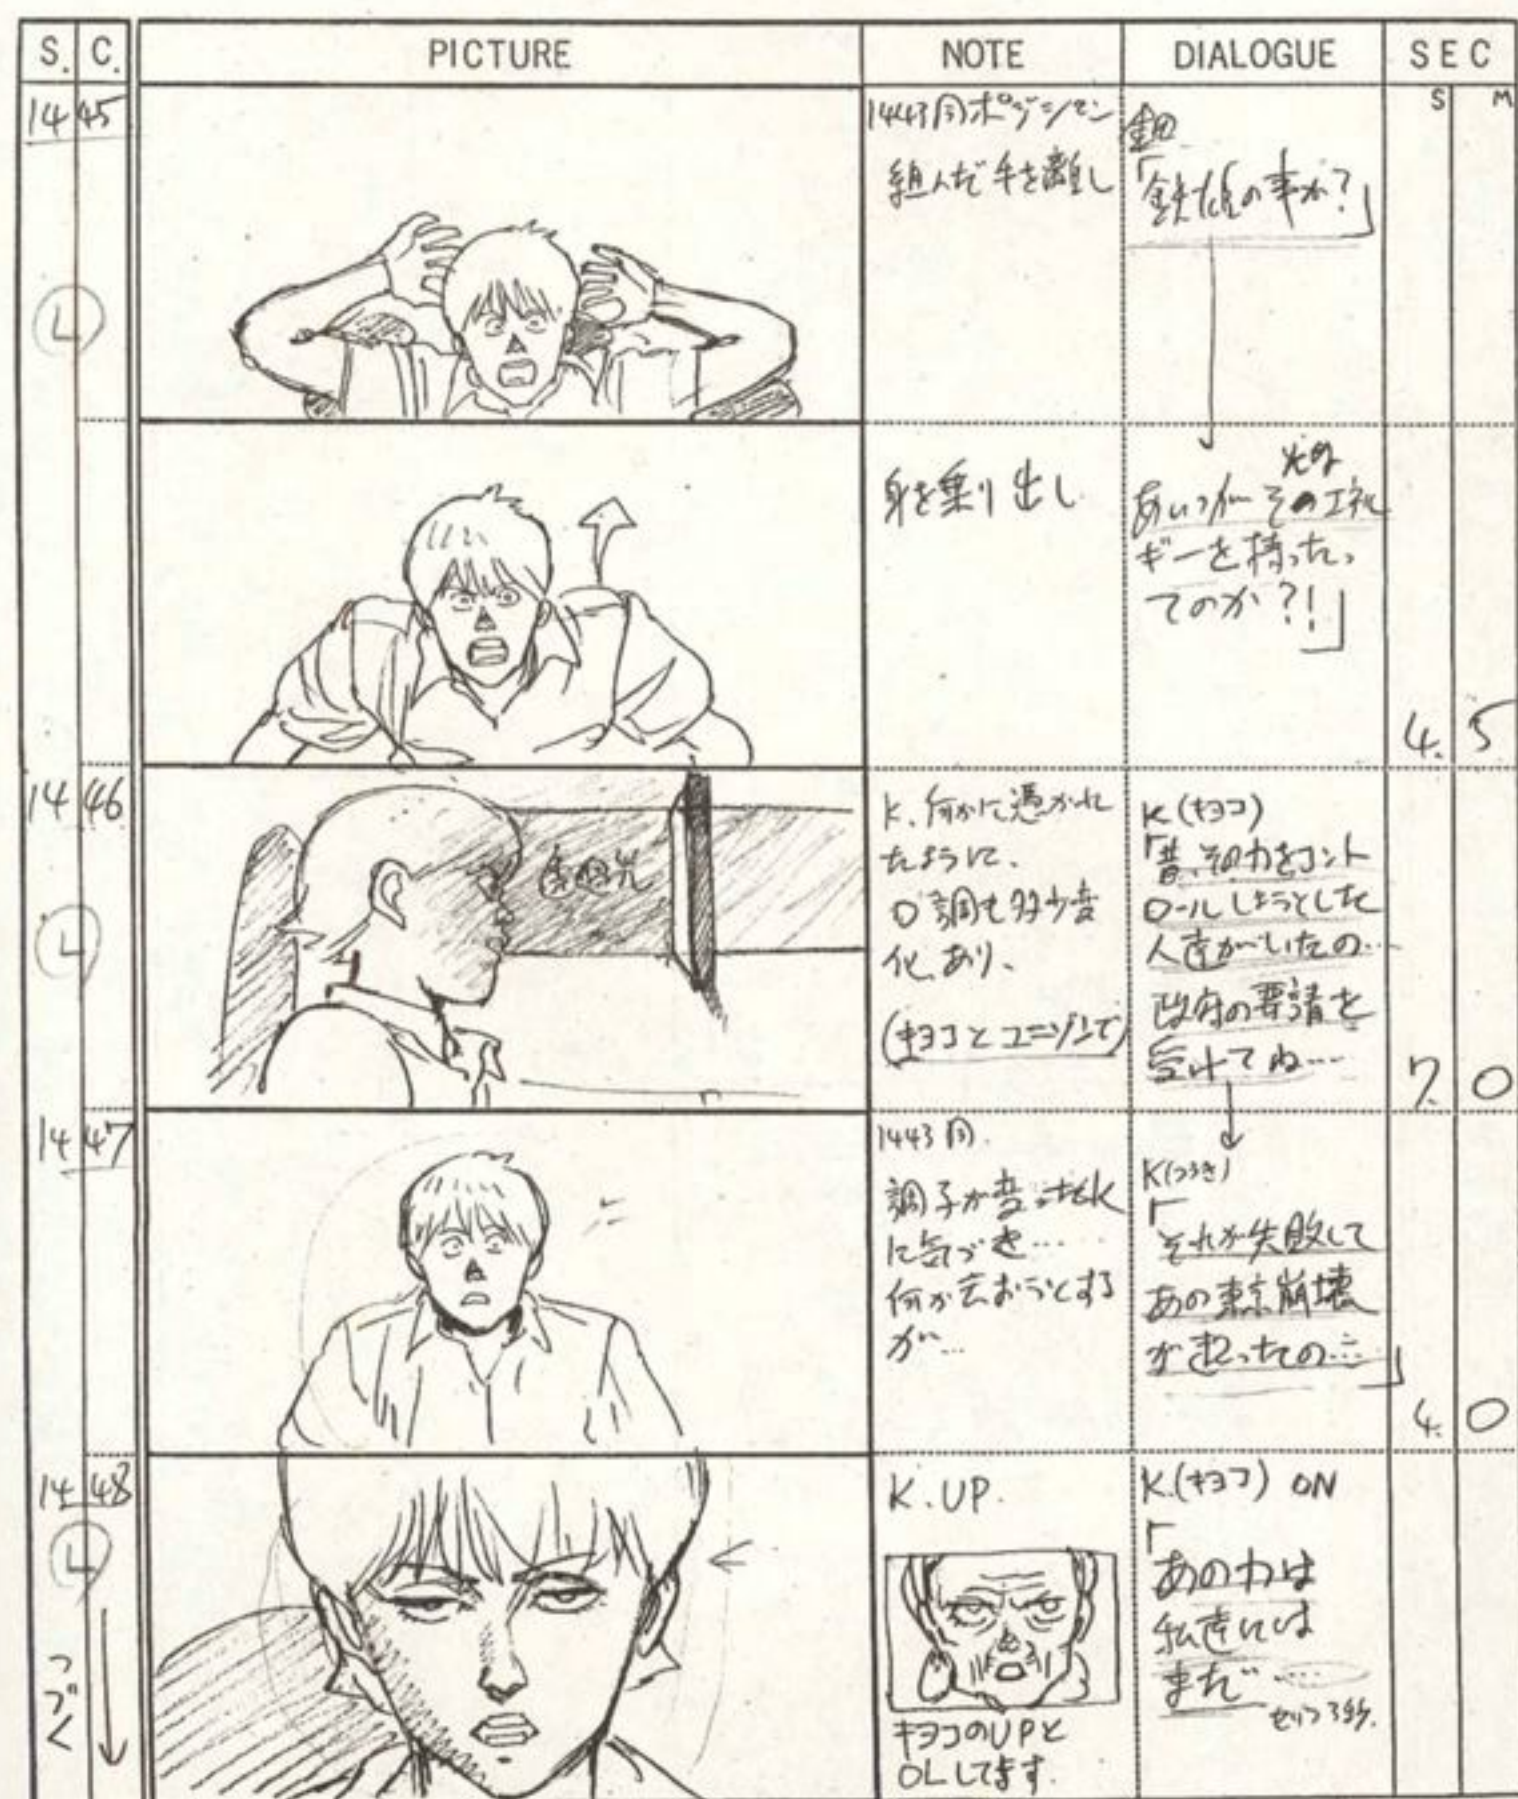 S. C. PICTURE NOTE DIALOGUE SEC
S M
14 45
L
1443同ポジション
組んだ手を離し
金田
「鉄雄の事か?」
身を乗り出し
あいつが その エネル
ギーを持ったっ
てのか?!」
4. 5
14 46
L
K. 何かに憑かれ
たように、
口調も多少変
化、あり、
(キヨコとユニゾンで)
K(キヨコ)
「昔、その力をコント
ロールしようとした
人達がいたの…
政府の要請を
受けてね…
7. 0
14 47
1443同.
調子が変ったK
に気づき…
何か云おうとする
が…
K(つづき)
「
それが失敗して
あの東京崩壊
が起ったの…」
4. 0
14 48
L
つづく
K.UP.
キヨコのUPと
OLしてます.
K.(キヨコ) ON
「
あの力は
私達には
まだ……
セリフ3秒.